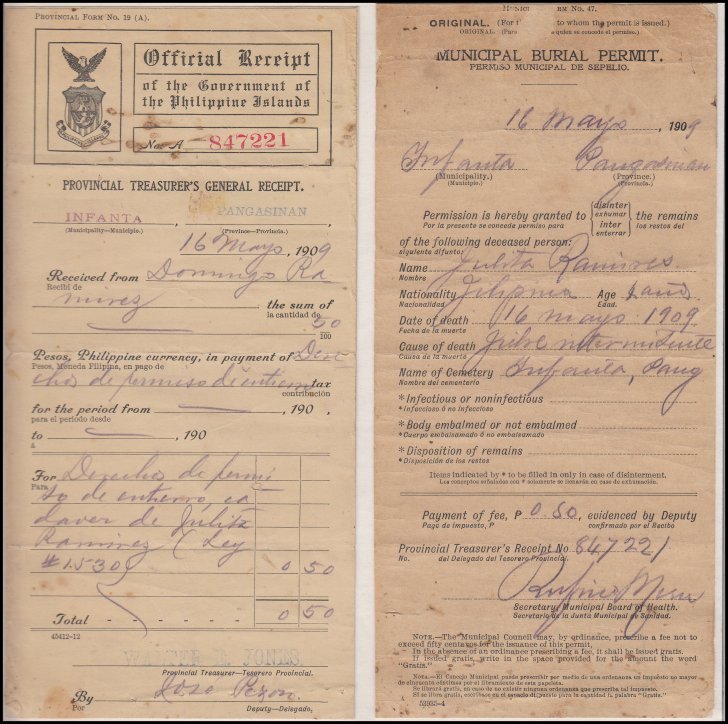 PROVINCIAL FORM No. 19 (A).
Official Receipt
of the Government of
the Philippine Islands
No. A 847221
PROVINCIAL TREASURER'S GENERAL RECEIPT.
INFANTA, PANGASINAN,
(Municipality—Municipio.) (Province—Provincia.)
16 Mayo, 1909
Received from Domingo Ra
Recibí de
mirez the sum of
la cantidad de
50
100
Pesos, Philippine currency, in payment of Dere
Pesos, Moneda Filipina, en pago de
cho de permiso de entierro tax
contribución
for the period from , 190 ,
para el período desde
to , 190
á
For Derecho de permi
Para
so de entierro, ca
daver de Julita
Ramirez (Ley
#1530) 0 50
Total 0 50
45412-12
WALTER E. JONES
Provincial Treasurer—Tesorero Provincial.
By Jose Pezon
Por
Deputy—Delegado,
No. 47.
ORIGINAL. (For to whom the permit is issued.)
ORIGINAL. (Para a quien se concede el permiso.)
MUNICIPAL BURIAL PERMIT.
PERMISO MUNICIPAL DE SEPELIO.
16 Mayo, 1909
Infanta Pangasinan
(Municipality.) (Province.)
(Municipio.) (Provincia.)
Permission is hereby granted to disinter exhumar inter enterrar the remains
Por la presente se concede permiso para los restos del
of the following deceased person:
siguiente difunto:
Name Julita Ramirez
Nombre
Nationality Filipina Age 1 año
Nacionalidad Edad.
Date of death 16 mayo 1909
Fecha de la muerte
Cause of death Fiebre intermitente
Causa de la muerte
Name of Cemetery Infanta, Pang
Nombre del cementerio
* Infectious or noninfectious
* Infeccioso ó no infeccioso
* Body embalmed or not embalmed
* Cuerpo embalsamado ó no embalsamado
* Disposition of remains
* Disposición de los restos
Items indicated by * to be filled in only in case of disinterment.
Los conceptos señalados con * solamente se llenarán en caso de exhumación.
Payment of fee, ₱ 0.50, evidenced by Deputy
Pago de impuesto, ₱ confirmado por el Recibo
Provincial Treasurer's Receipt No. 847221
No. del Delegado del Tesorero Provincial.
Secretary Municipal Board of Health.
Secretario de la Junta Municipal de Sanidad.
NOTE.—The Municipal Council may, by ordinance, prescribe a fee not to
exceed fifty centavos for the issuance of this permit.
In the absence of an ordinance prescribing a fee, it shall be issued gratis.
If issued gratis, write in the space provided for the amount the word
"Gratis."
NOTA.—El Concejo Municipal puede prescribir por medio de una ordenanza un impuesto no mayor
de cincuenta céntimos por el libramiento de este papeleta.
Se librará gratis, en caso de no existir ninguna ordenanza que prescriba tal impuesto.
Si se libra gratis, escríbase en el espacio de puesto para la cantidad la palabra "Gratis."
53935-4